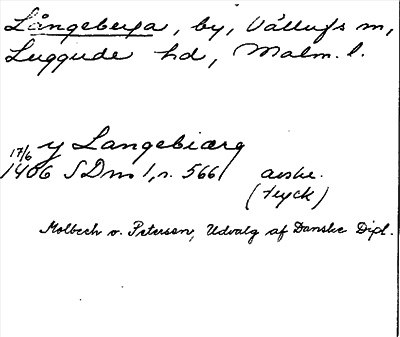 Långeberga, by, Välluvs sn,
Luggude hd, Malm. l.
17/6 y Langebiærg
1406 SDns 1, n. 566 avskr.
(tryck)
Molbech o. Petersen, Udvalg af Danske Dipl.